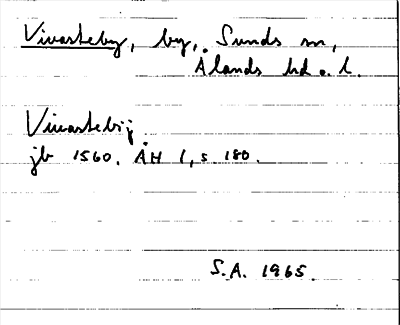 Vivasteby, by, Sunds sn,
Ålands hd o. l.
Vivastebij
jb 1560. ÅH 1, s 180.
S.A. 1965.